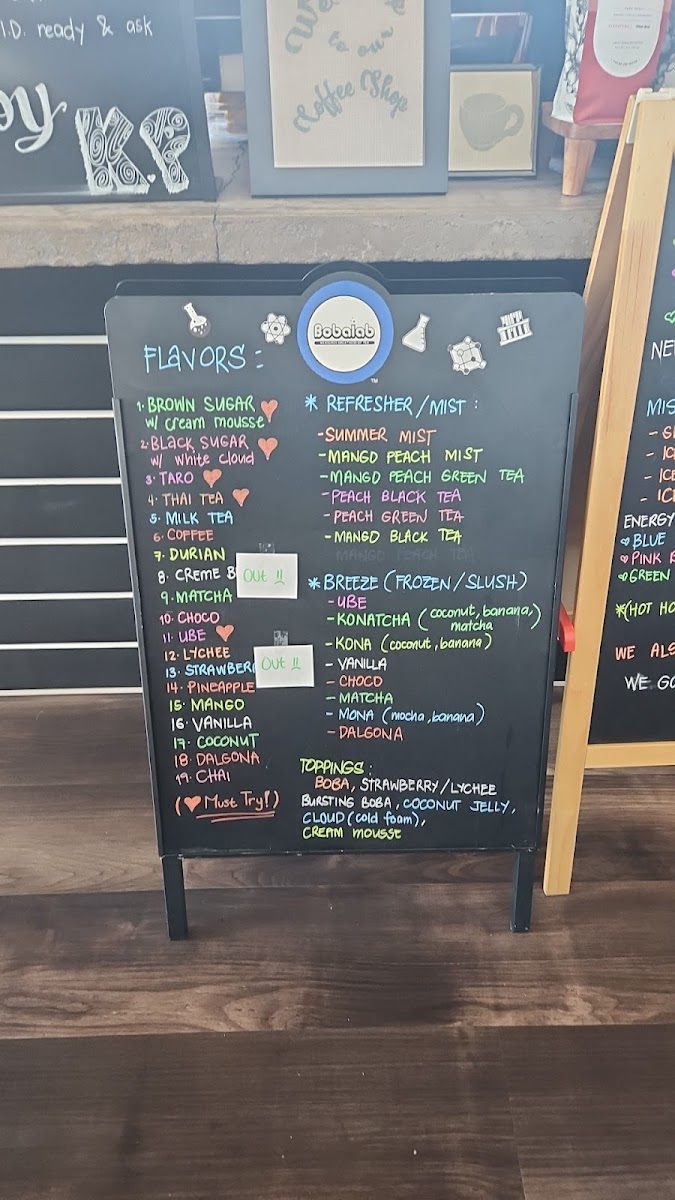 I.D. ready & ask
K.P
to our
Coffee Shop
Bobalab
TM
FLAVORS :
1. BROWN SUGAR
w/ cream mousse
2. BLACK SUGAR
w/ white cloud
3. TARO
4. THAI TEA
5. MILK TEA
6. COFFEE
7. DURIAN
8. CREME B
OUT !!
9. MATCHA
10. CHOCO
11. UBE
12. LYCHEE
13. STRAWBER
OUT !!
14. PINEAPPLE
15. MANGO
16. VANILLA
17. COCONUT
18. DALGONA
19. CHAI
(♥ Must Try!)
* REFRESHER / MIST :
- SUMMER MIST
- MANGO PEACH MIST
- MANGO PEACH GREEN TEA
- PEACH BLACK TEA
- PEACH GREEN TEA
- MANGO BLACK TEA
MANGO PEACH TEA
* BREEZE (FROZEN / SLUSH)
- UBE
- KONATCHA (coconut, banana,
matcha)
- KONA (coconut, banana)
- VANILLA
- CHOCO
- MATCHA
- MONA (mocha, banana)
- DALGONA
TOPPINGS :
BOBA, STRAWBERRY / LYCHEE
BURSTING BOBA, COCONUT JELLY,
CLOUD (cold foam),
CREAM MOUSSE
NE
MIS
- IC
- ICE
- IC
ENERGY
BLUE
PINK
GREEN
*(HOT HO
WE ALS
WE GO